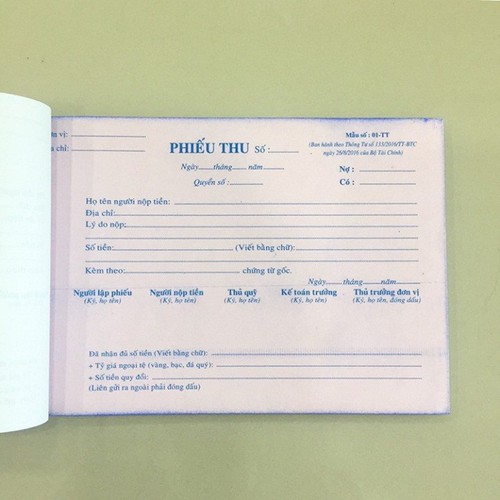 ơn vị:
ịa chỉ:
PHIẾU THU Số:
Mẫu số : 01-TT
(Ban hành theo Thông Tư số 133/2016/TT-BTC
ngày 26/8/2016 của Bộ Tài Chính)
Ngày......tháng......năm......
Quyển số :
Nợ :
Có :
Họ tên người nộp tiền:
Địa chỉ:
Lý do nộp:
Số tiền: (Viết bằng chữ):
Kèm theo: chứng từ gốc.
Ngày......tháng......năm......
Người lập phiếu Người nộp tiền Thủ quỹ Kế toán trưởng Thủ trưởng đơn vị
(Ký, họ tên) (Ký, họ tên) (Ký, họ tên) (Ký, họ tên) (Ký, họ tên, đóng dấu)
Đã nhận đủ số tiền (Viết bằng chữ):
+ Tỷ giá ngoại tệ (vàng, bạc, đá quý):
+ Số tiền quy đổi:
(Liên gửi ra ngoài phải đóng dấu)